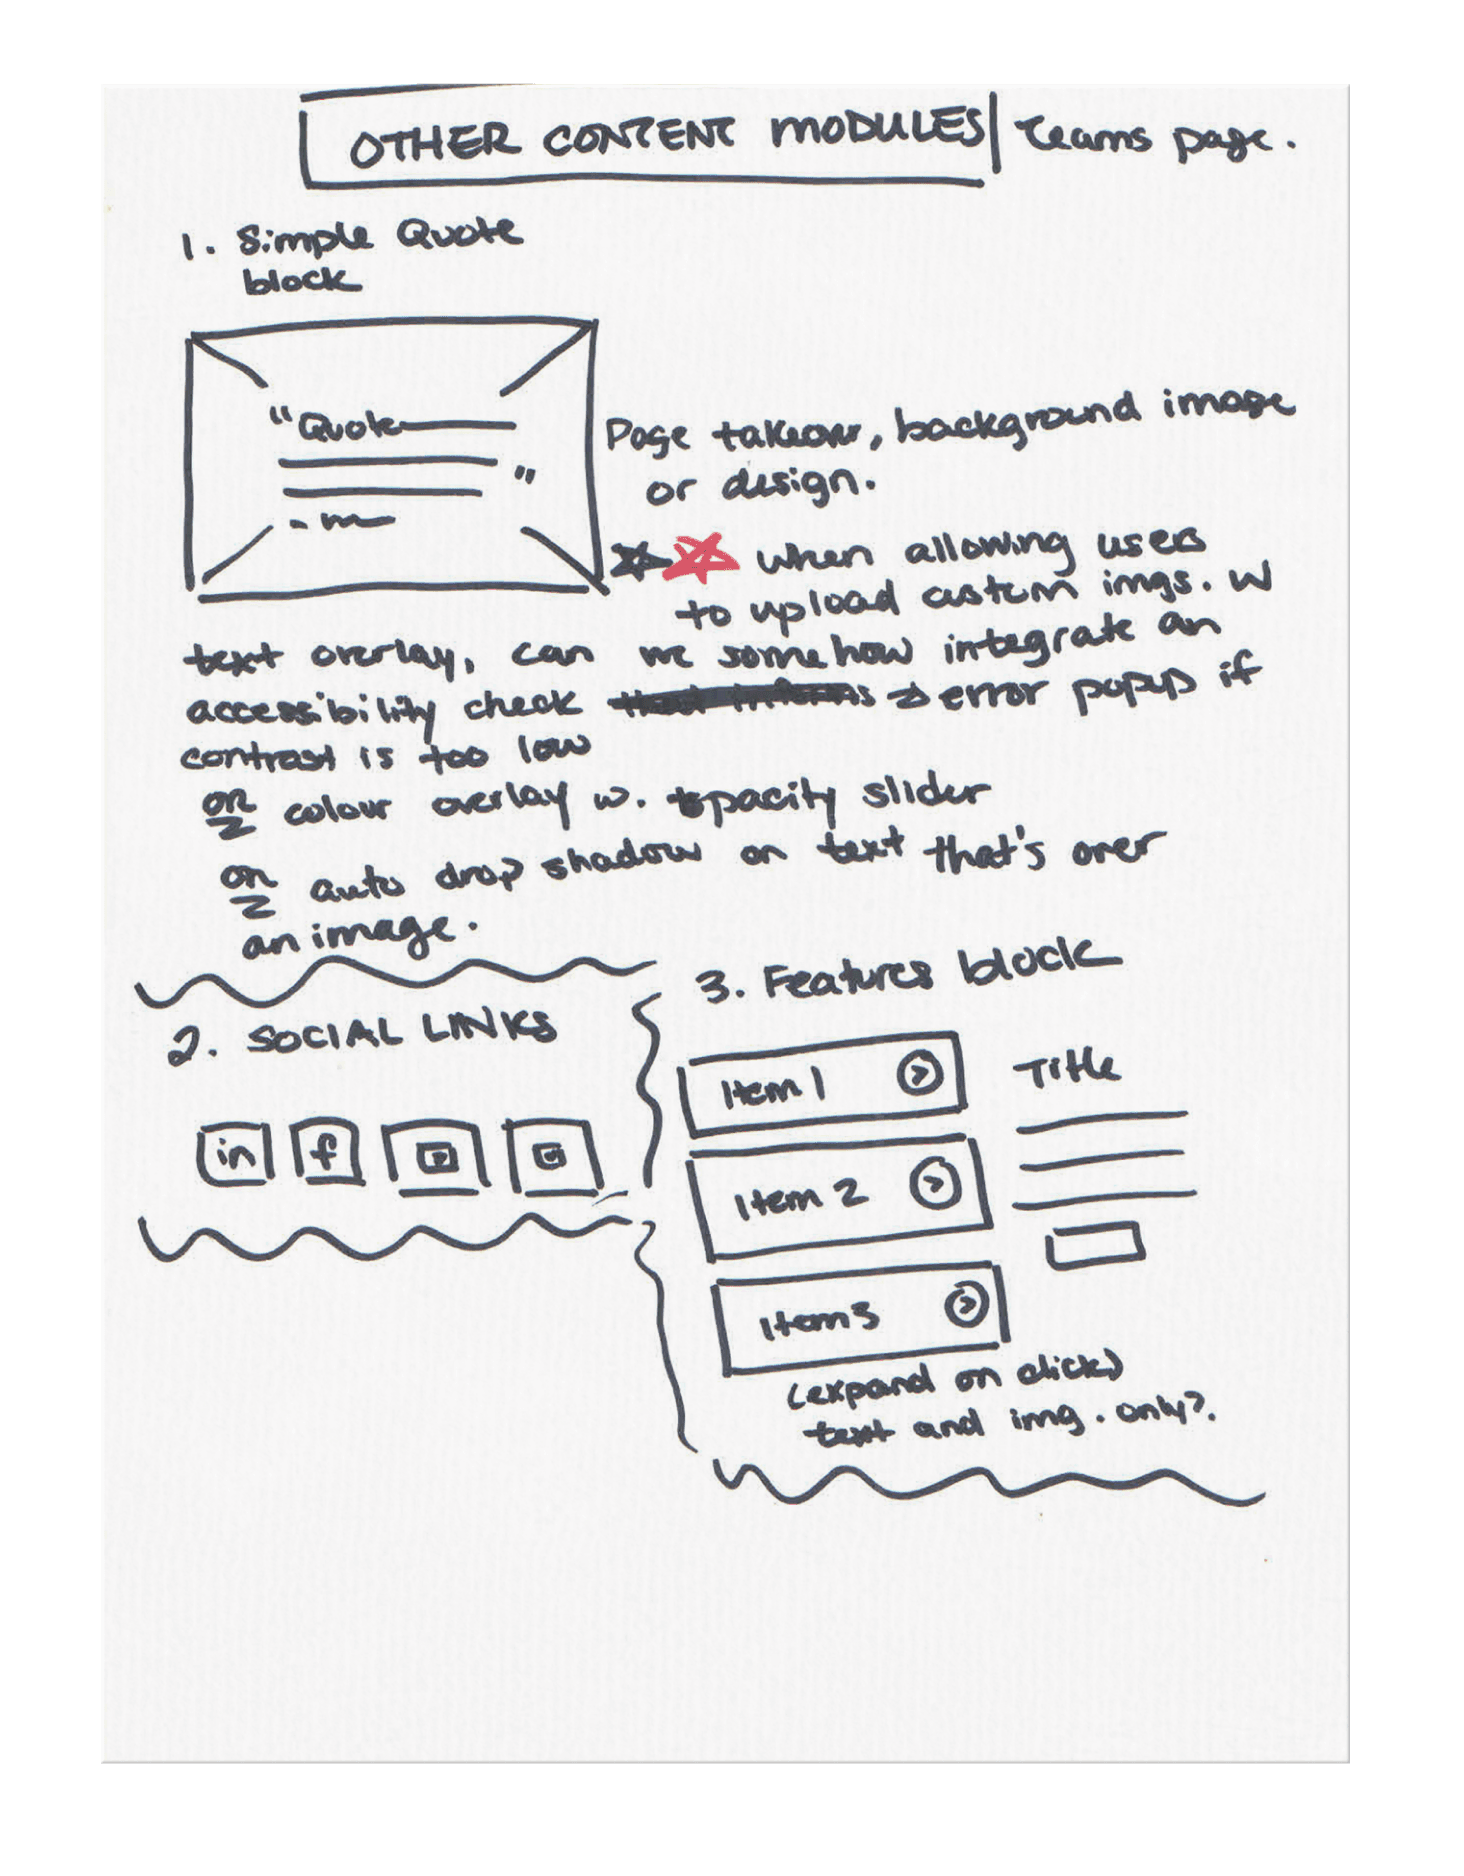 OTHER CONTENT MODULES | Teams page.
1. Simple Quote
block
"Quote
"
Page takeover, background image
or design.
when allowing users
to upload custom imgs. W
text overlay, can we somehow integrate an
accessibility check → error popup if
contrast is too low
OR colour overlay w. opacity slider
OR auto drop shadow on text that's over
an image.
2. SOCIAL LINKS
in f
3. Features block
Item 1
Item 2
Item 3
Title
(expand on click)
text and img. only?.